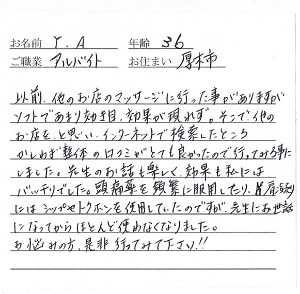 お名前 Y.A 年齢 36
ご職業 アルバイト お住まい 厚木市
以前、他のお店のマッサージに行った事がありますが
ソフトであまり効き目、効果が現れず。そこで、他の
お店を、と思い、インターネットで検索したところ
かしわぎ整体の口コミがとても良かったので行ってみる事に
しました。先生のお話も楽しく、効果も私には
バッチリでした。頭痛薬を頻繁に服用したり、肩こり
にはシップやトクホンを使用していたのですが、先生にお世話
になってからはほとんど使わなくなりました。
お悩みの方、是非行ってみて下さい!!